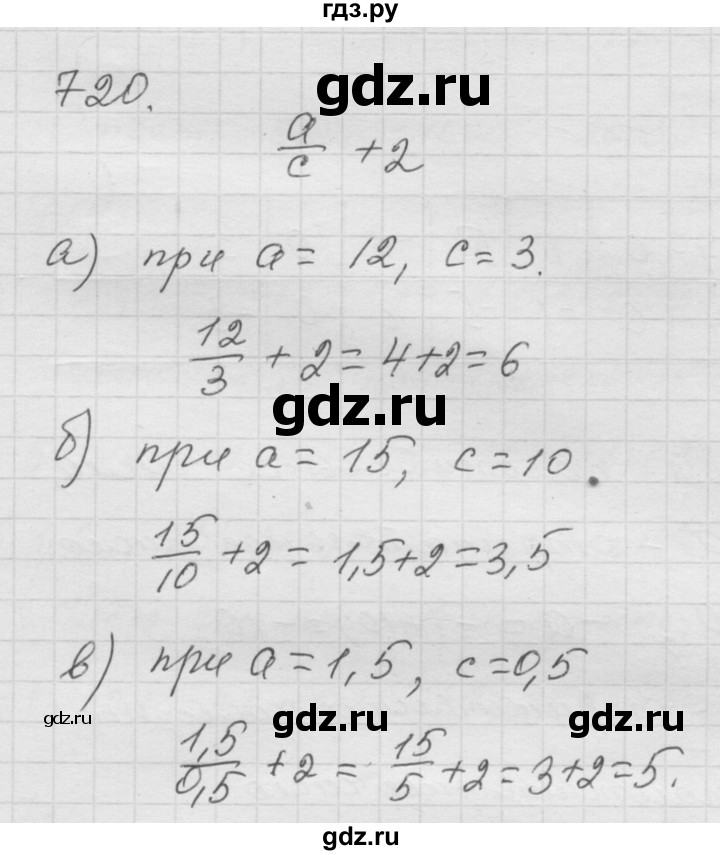 гдз.ру
720.
gdz.ru
a/c + 2
а) при a = 12, c = 3.
12/3 + 2 = 4+2 = 6
gdz.ru
б) при a = 15, c = 10.
15/10 + 2 = 1,5+2 = 3,5
в) при a = 1,5, c = 0,5
gdz.ru gdz.ru gdz.ru
1,5/0,5 + 2 = 15/5 + 2 = 3+2 = 5.
gdz.ru